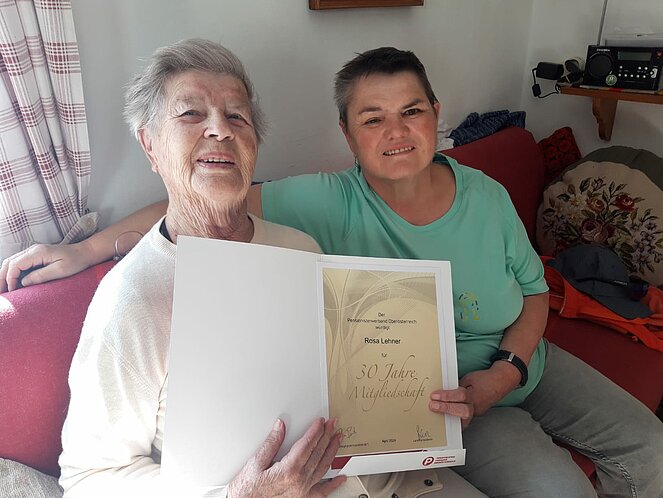 Der
Pensionistenverband Oberösterreich
würdigt
Rosa Lehner
für
30 Jahre
Mitgliedschaft
April 2024